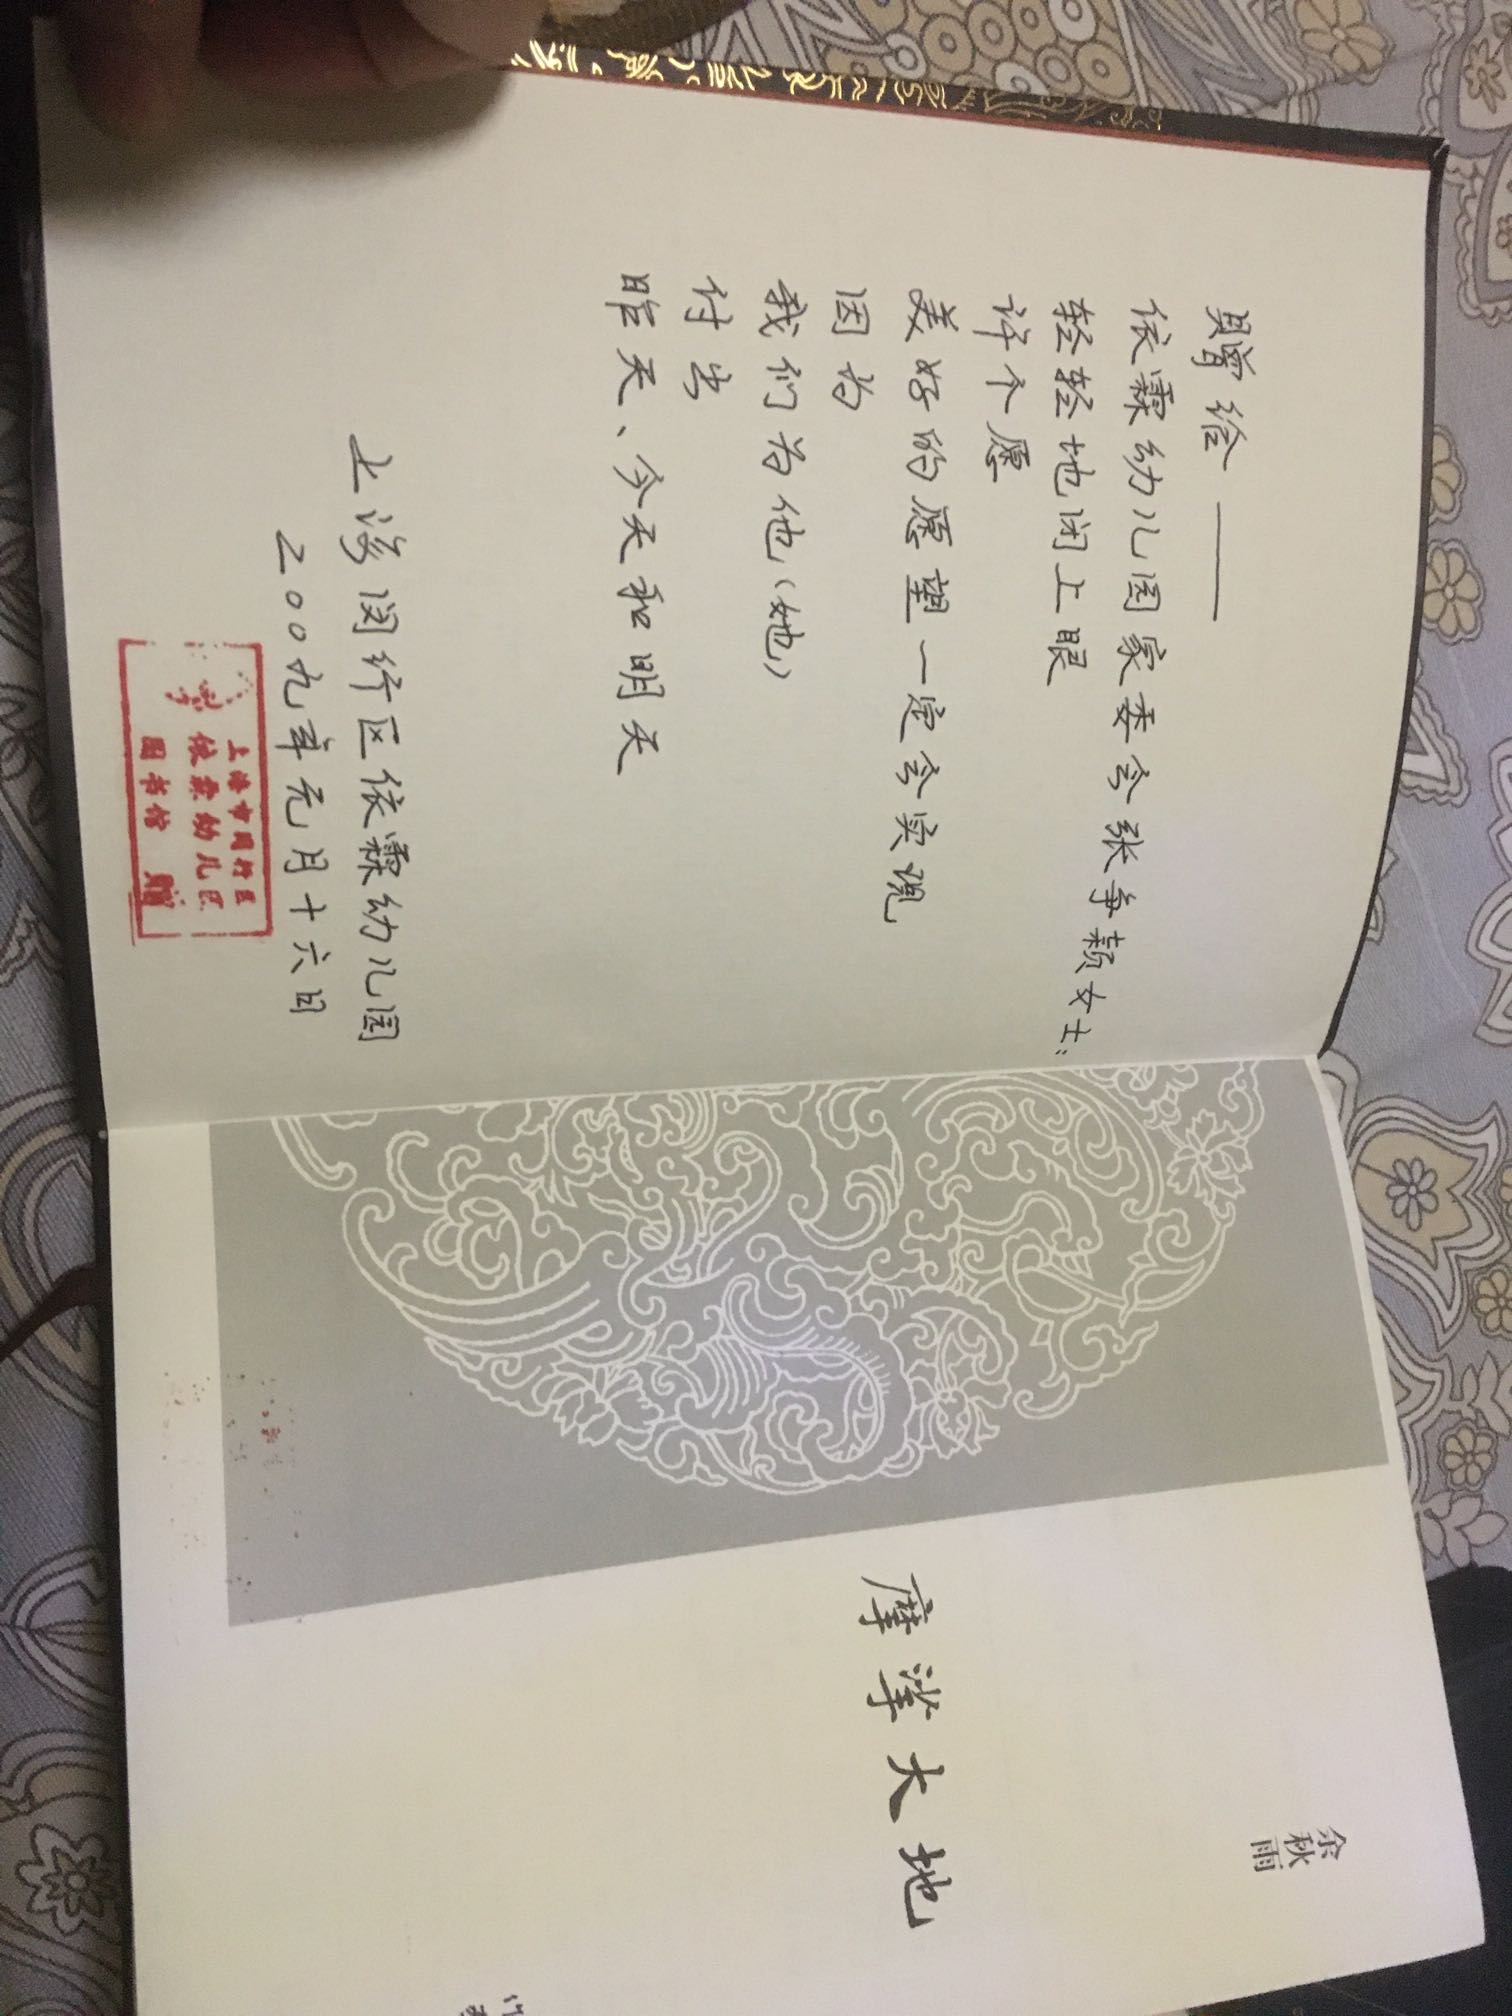 赠给——
依霖幼儿园家委会张争颖女士：
轻轻地闭上眼
许个愿
美好的愿望一定会实现
因为
我们为他（她）
付出
昨天、今天和明天
上海闵行区依霖幼儿园
二00九年元月十六日
上海市闵行区
依霖幼儿园
图书馆 赠
余秋雨
摩挲大地